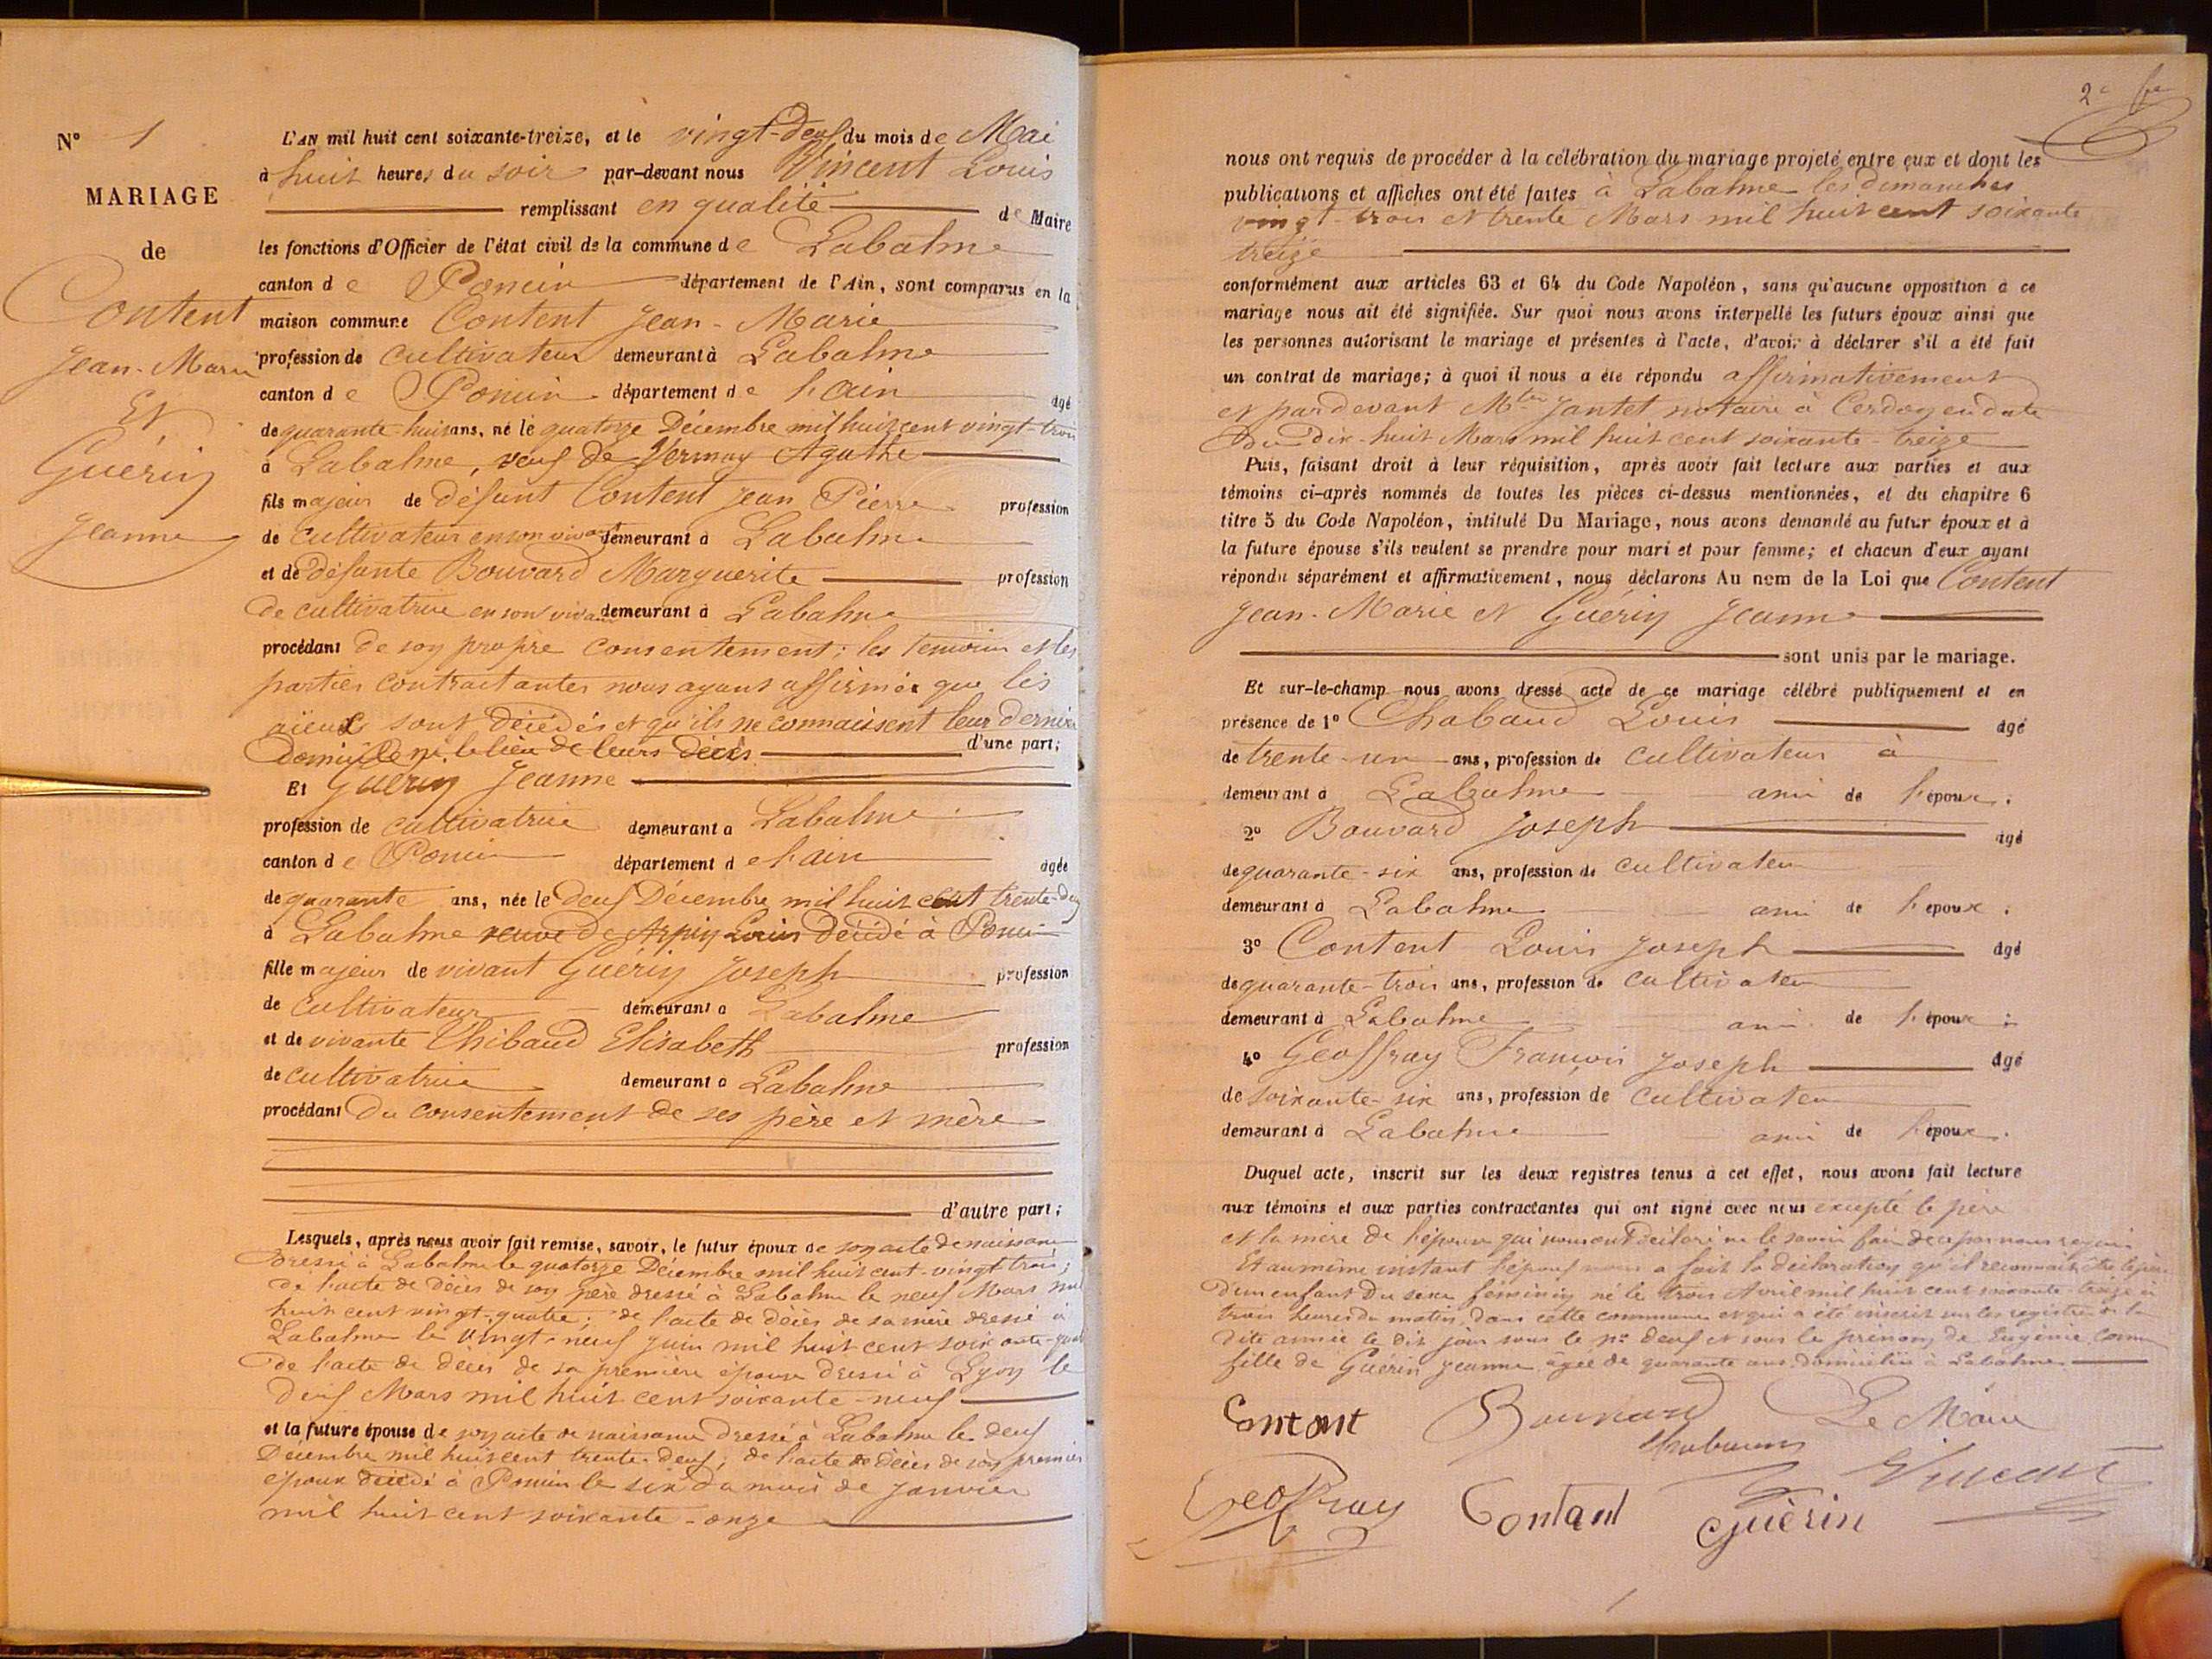 N° 1
MARIAGE
de
Content
Jean-Marie
Et
Guérin
Jeanne
L'AN mil huit cent soixante-treize, et le vingt-deux du mois de Mai
à huit heures du soir par-devant nous Vincent Louis
remplissant en qualité de Maire
les fonctions d'Officier de l'état civil de la commune de Labalme
canton de Poncin département de l'Ain, sont comparus en la
maison commune Content Jean-Marie
profession de cultivateur demeurant à Labalme
canton de Poncin département de l'ain âgé
de quarante-huit ans, né le quatorze Décembre mil huit cent vingt-trois
à Labalme, veuf de Vermay Agathe
fils majeur de défunt Content Jean Pierre profession
de cultivateur en son vivant demeurant à Labalme
et de défunte Bouvard Marguerite profession
de cultivatrice en son vivant demeurant à Labalme
procédant de son propre consentement; les temoins et les
parties contractantes nous ayant affirmée que les
aïeuls sont décédés et qu'ils ne connaissent leur dernier
Domicile ni le lieu de leurs décès d'une part;
Et Guérin Jeanne
profession de cultivatrice demeurant à Labalme
canton de Poncin département de l'ain âgée
de quarante ans, née le deux Décembre mil huit cent trente-deux
à Labalme veuve de Arpin Louis décédé à Poncin
fille majeur de vivant Guérin Joseph profession
de cultivateur demeurant à Labalme
et de vivante Thibaud Elisabeth profession
de cultivatrice demeurant à Labalme
procédant du consentement de ses père et mère
d'autre part;
Lesquels, après nous avoir fait remise, savoir, le futur époux de son acte de naissance
dressé à Labalme le quatorze Décembre mil huit cent-vingt trois;
de l'acte de décès de son père dressé à Labalme le neuf Mars mil
huit cent vingt-quatre; de l'acte de décès de sa mère dressé à
Labalme le vingt-neuf juin mil huit cent soixante-quat
de l'acte de décès de sa première épouse dressé à Lyon le
deux Mars mil huit cent soixante-neuf
et la future épouse de son acte de naissance dressé à Labalme le deux
Décembre mil huit cent trente-deux; de l'acte de décès de son premier
époux décédé à Poncin le six du mois de Janvier
mil huit cent soixante-onze
2e
nous ont requis de procéder à la célébration du mariage projeté entre eux et dont les
publications et affiches ont été faites à Labalme les dimanches
vingt-trois et trente Mars mil huit cent soixante
treize
conformément aux articles 63 et 64 du Code Napoléon, sans qu'aucune opposition à ce
mariage nous ait été signifiée. Sur quoi nous avons interpellé les futurs époux ainsi que
les personnes autorisant le mariage et présentes à l'acte, d'avoir à déclarer s'il a été fait
un contrat de mariage; à quoi il nous a été répondu affirmativement
et par devant Jantet notaire à Cerdon en date
du Dix-huit Mars mil huit cent soixante-treize
Puis, faisant droit à leur réquisition, après avoir fait lecture aux parties et aux
témoins ci-après nommés de toutes les pièces ci-dessus mentionnées, et du chapitre 6
titre 5 du Code Napoléon, intitulé Du Mariage, nous avons demandé au futur époux et à
la future épouse s'ils veulent se prendre pour mari et pour femme; et chacun d'eux ayant
répondu séparément et affirmativement, nous déclarons Au nom de la Loi que Content
Jean-Marie et Guérin Jeanne
sont unis par le mariage.
Et sur-le-champ nous avons dressé acte de ce mariage célébré publiquement et en
présence de 1° Chabaud Louis âgé
de trente-un ans, profession de cultivateur à
demeurant à Labalme ami de l'époux;
2° Bouvard Joseph âgé
de quarante-six ans, profession de cultivateur
demeurant à Labalme ami de l'époux;
3° Content Louis Joseph âgé
de quarante-trois ans, profession de cultivateur
demeurant à Labalme ami de l'époux;
4° Geoffray François Joseph âgé
de soixante-six ans, profession de cultivateur
demeurant à Labalme ami de l'époux.
Duquel acte, inscrit sur les deux registres tenus à cet effet, nous avons fait lecture
aux témoins et aux parties contractantes qui ont signé avec nous excepté le père
et la mère de l'épouse qui nous ont déclaré ne le savoir faire de ce par nous requis
Et au même instant l'époux nous a fait la déclaration qu'il reconnait être le père
d'un enfant du sexe féminin né le trois Avril mil huit cent soixante-treize à
trois heures du matin, dans cette commune et qui a été inscrit sur les registres de la
dite année le dit jour sous le n° deux et sous le prénom de Eugénie comme
fille de Guérin Jeanne âgée de quarante ans domiciliée à Labalme
Contant Bouvard Le Maire
Vincent
Geoffray Contant Guérin